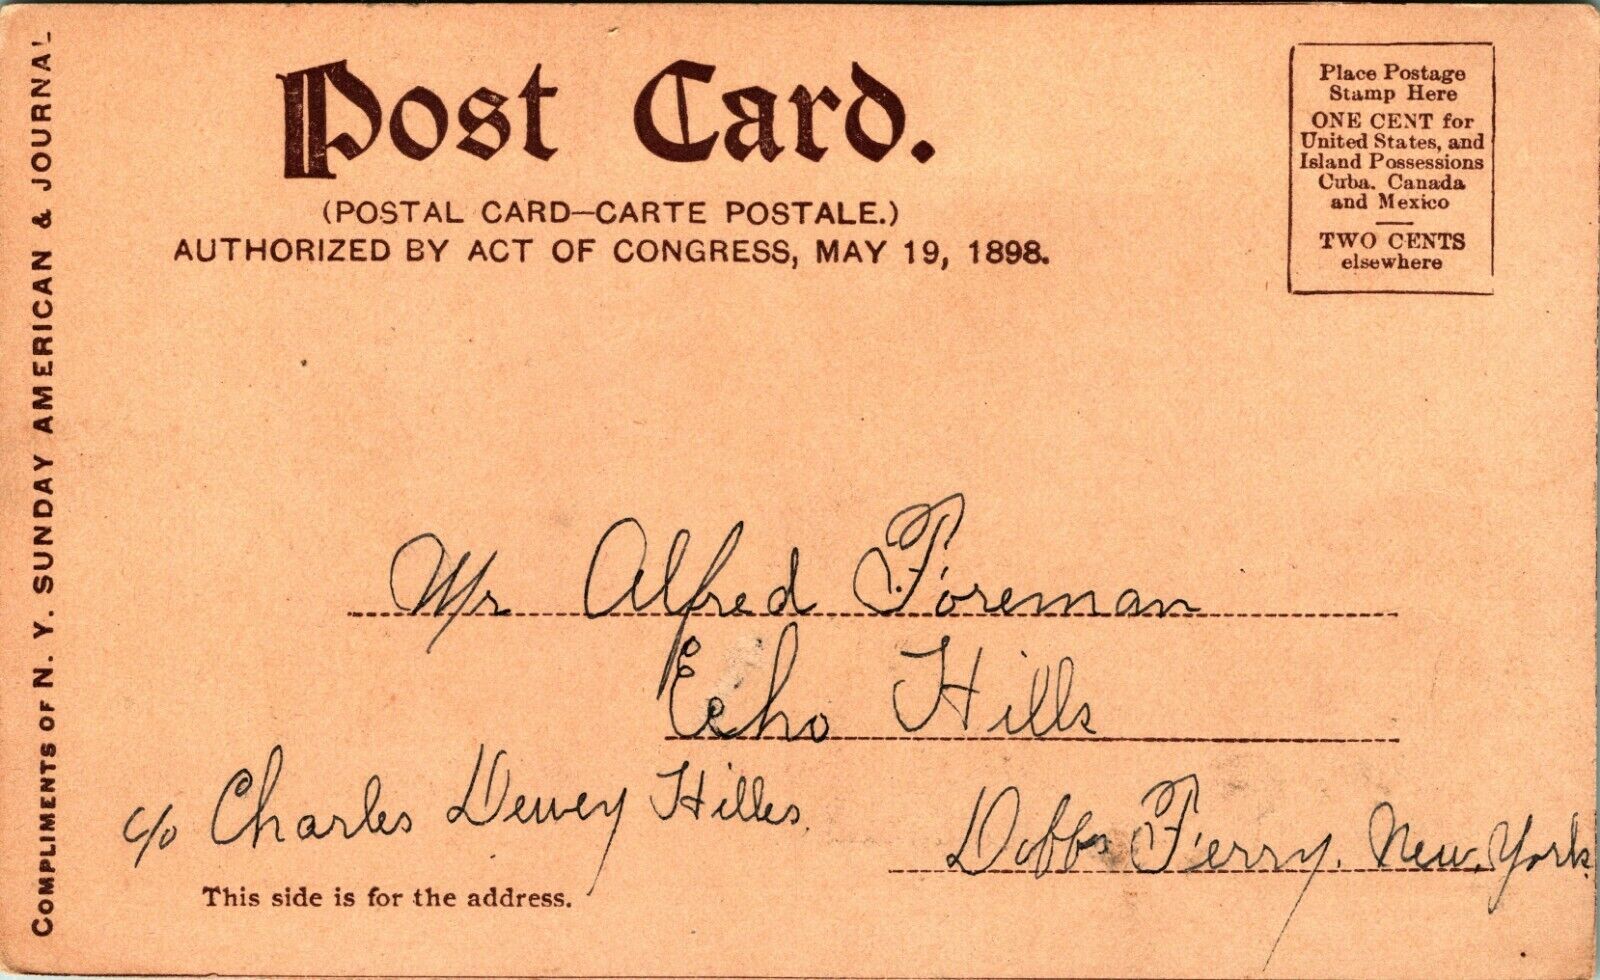 COMPLIMENTS OF N. Y. SUNDAY AMERICAN & JOURNAL
Post Card.
(POSTAL CARD—CARTE POSTALE.)
AUTHORIZED BY ACT OF CONGRESS, MAY 19, 1898.
Place Postage
Stamp Here
ONE CENT for
United States, and
Island Possessions
Cuba. Canada
and Mexico
TWO CENTS
elsewhere
Mr Alfred Foreman
Echo Hills
c/o Charles Dewey Hilles.
Dobbs Ferry. New York.
This side is for the address.